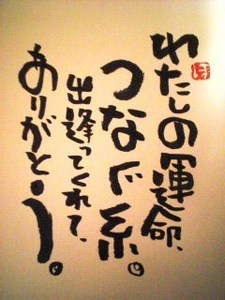 わたしの運命、
つなぐ糸。
出逢ってくれて、
ありがとう。